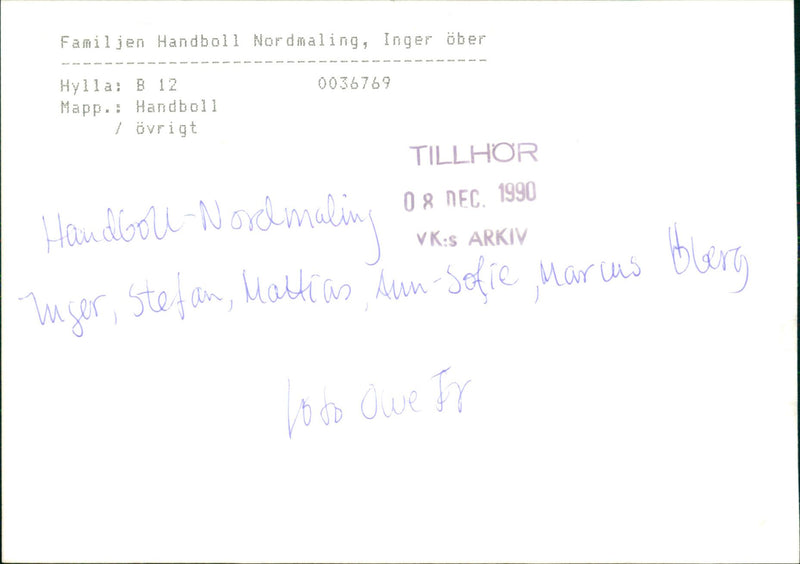 Familjen Handboll Nordmaling, Inger öber
----------------------------------------
Hylla: B 12 0036769
Mapp.: Handboll
/ övrigt
TILLHÖR
08 DEC. 1990
VK:s ARKIV
Handboll-Nordmaling
Inger, Stefan, Mattias, Ann-Sofie, Marcus Öberg
foto Owe Fr